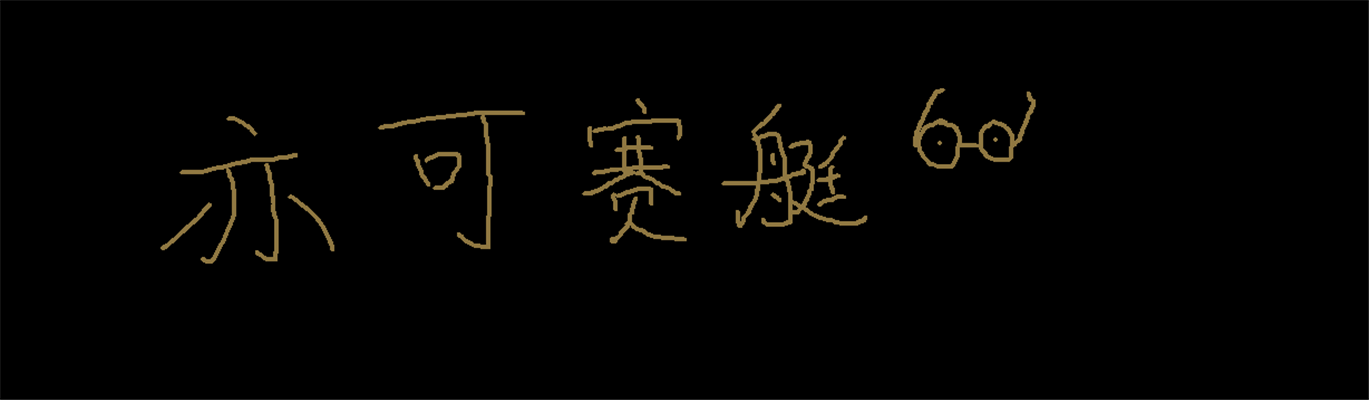 亦可赛艇